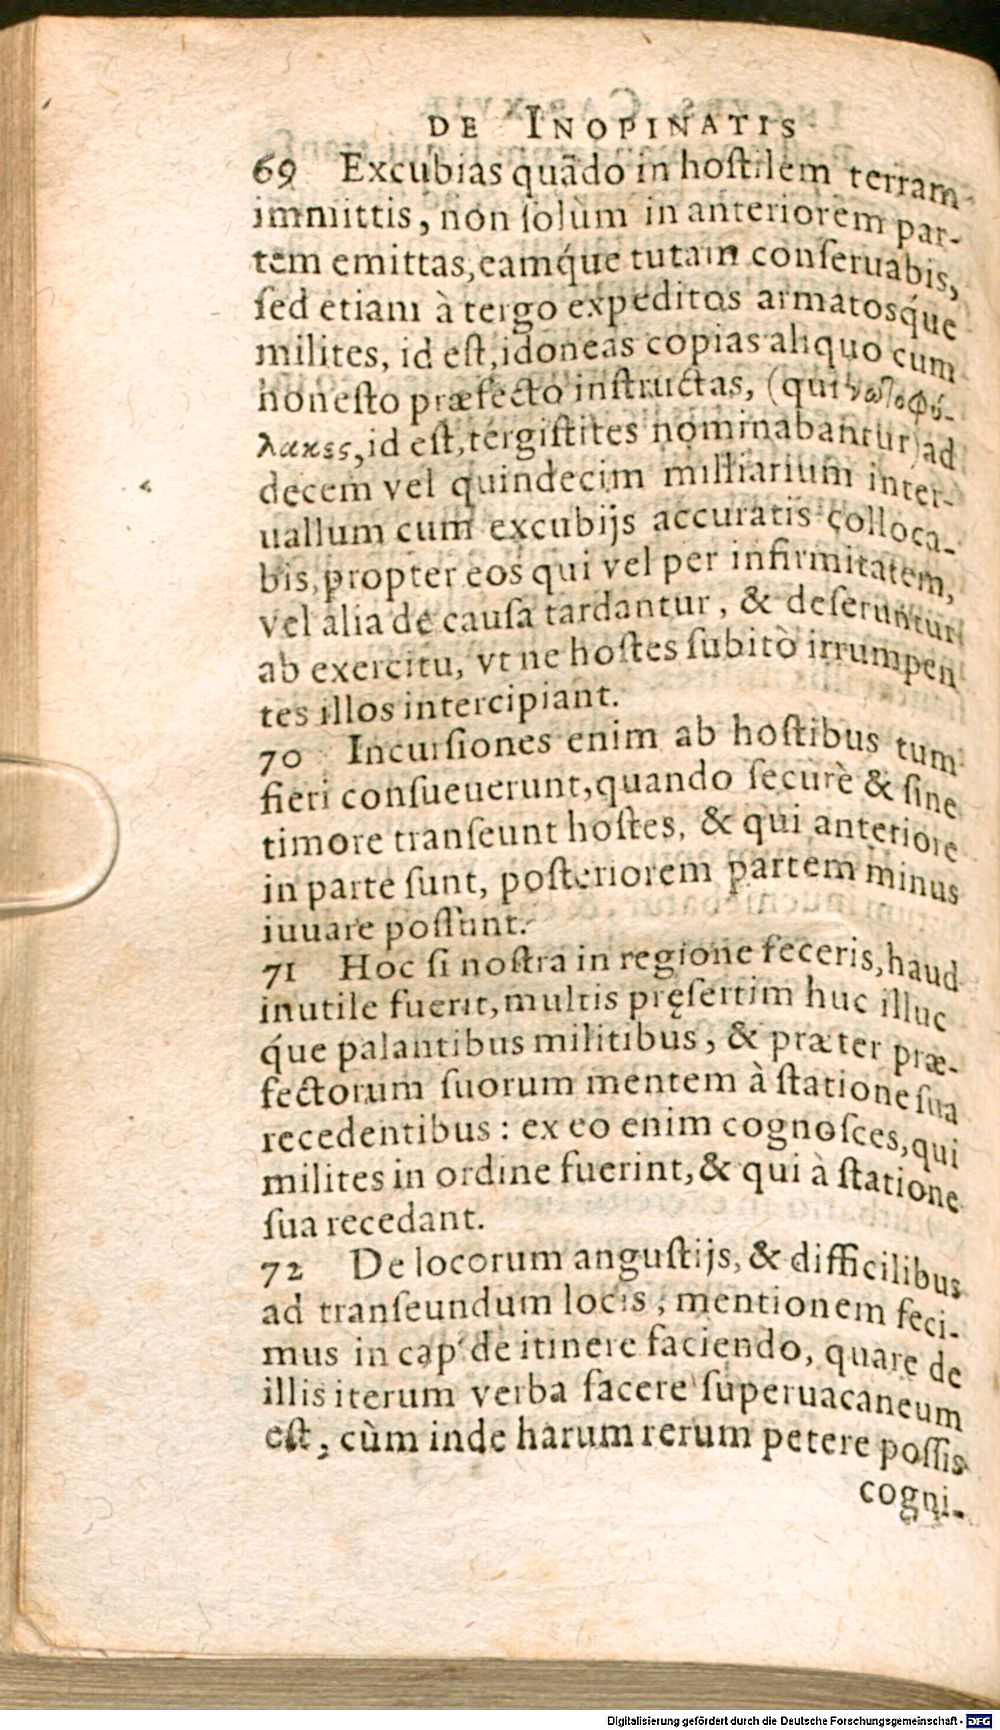 DE INOPINATIS
69 Excubias quãdo in hostilem terram
immittis, non solùm in anteriorem par-
tem emittas, eamq́ue tutam conseruabis,
sed etiam à tergo expeditos armatosq́ue
milites, id est, idoneas copias aliquo cum
honesto præfecto instructas, (qui νωτοφύ-
λακες, id est, tergistites nominabantur) ad
decem vel quindecim milliarium inter-
uallum cum excubijs accuratis colloca-
bis, propter eos qui vel per infirmitatem,
vel alia de causa tardantur, & deseruntur
ab exercitu, vt ne hostes subitò irrumpen
tes illos intercipiant.
70 Incursiones enim ab hostibus tum
fieri consueuerunt, quando securè & sine
timore transeunt hostes, & qui anteriore
in parte sunt, posteriorem partem minus
iuuare possunt.
71 Hoc si nostra in regione feceris, haud
inutile fuerit, multis pręsertim huc illuc
q́ue palantibus militibus, & præter præ-
fectorum suorum mentem à statione sua
recedentibus: ex eo enim cognosces, qui
milites in ordine fuerint, & qui à statione
sua recedant.
72 De locorum angustijs, & difficilibus
ad transeundum locis, mentionem feci-
mus in cap. de itinere faciendo, quare de
illis iterum verba facere superuacaneum
est, cùm inde harum rerum petere possis
cogni-
Digitalisierung gefördert durch die Deutsche Forschungsgemeinschaft - DFG